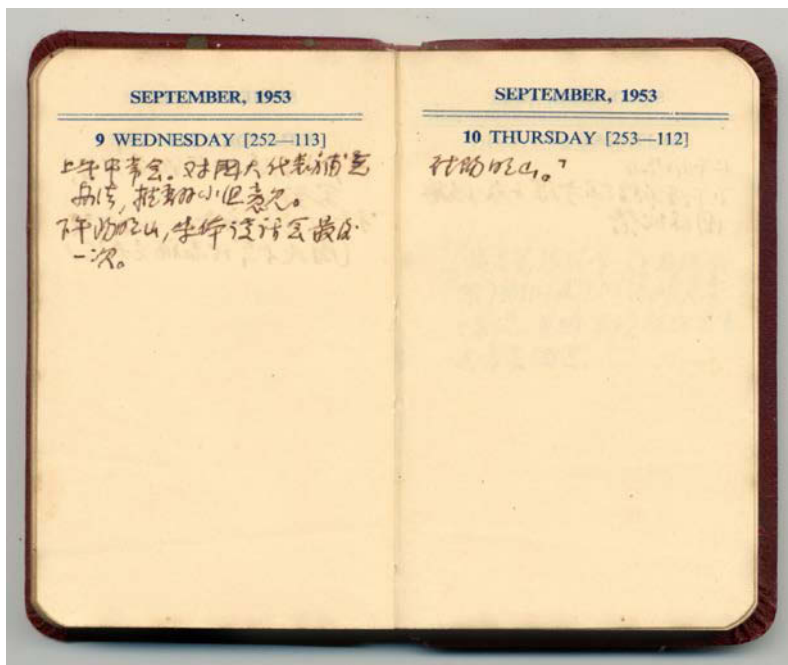 SEPTEMBER, 1953
9 WEDNESDAY [252—113]
上午中常会。对国大代表补选
办法, 提者小但意见。
下午阳明山, 朱仰谈话会最后
一次。
SEPTEMBER, 1953
10 THURSDAY [253—112]
阳明山。